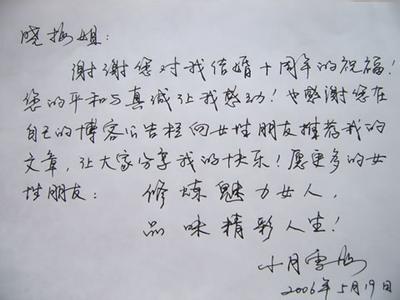 晓梅姐：
谢谢您对我结婚十周年的祝福！
您的平和与真诚让我感动！也感谢您在
自己的博客公告栏向女性朋友推荐我的
文章，让大家分享我的快乐！愿更多的女
性朋友：修炼魅力女人，
品味精彩人生！
小月雪
2006年5月19日